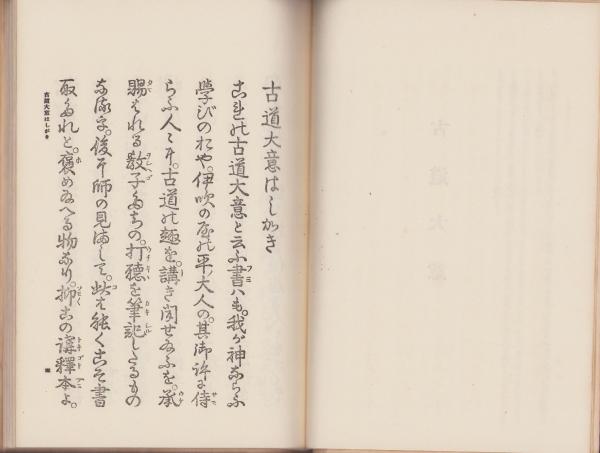 古道大意はしがき
これの古道大意と云ふ書ハも。我が神ならふ
學びのおや。伊吹の屋の平大人の。其御許に侍
らふ人々に。古道の趣を。講き聞せ給ふを。承
賜はれる敎子たちの。打聽を筆記したるもの
なるを。後に師の見まして。此は能くこそ書
取たれと。褒め給へる物なり。抑この講釋本よ。
古道大意はしがき